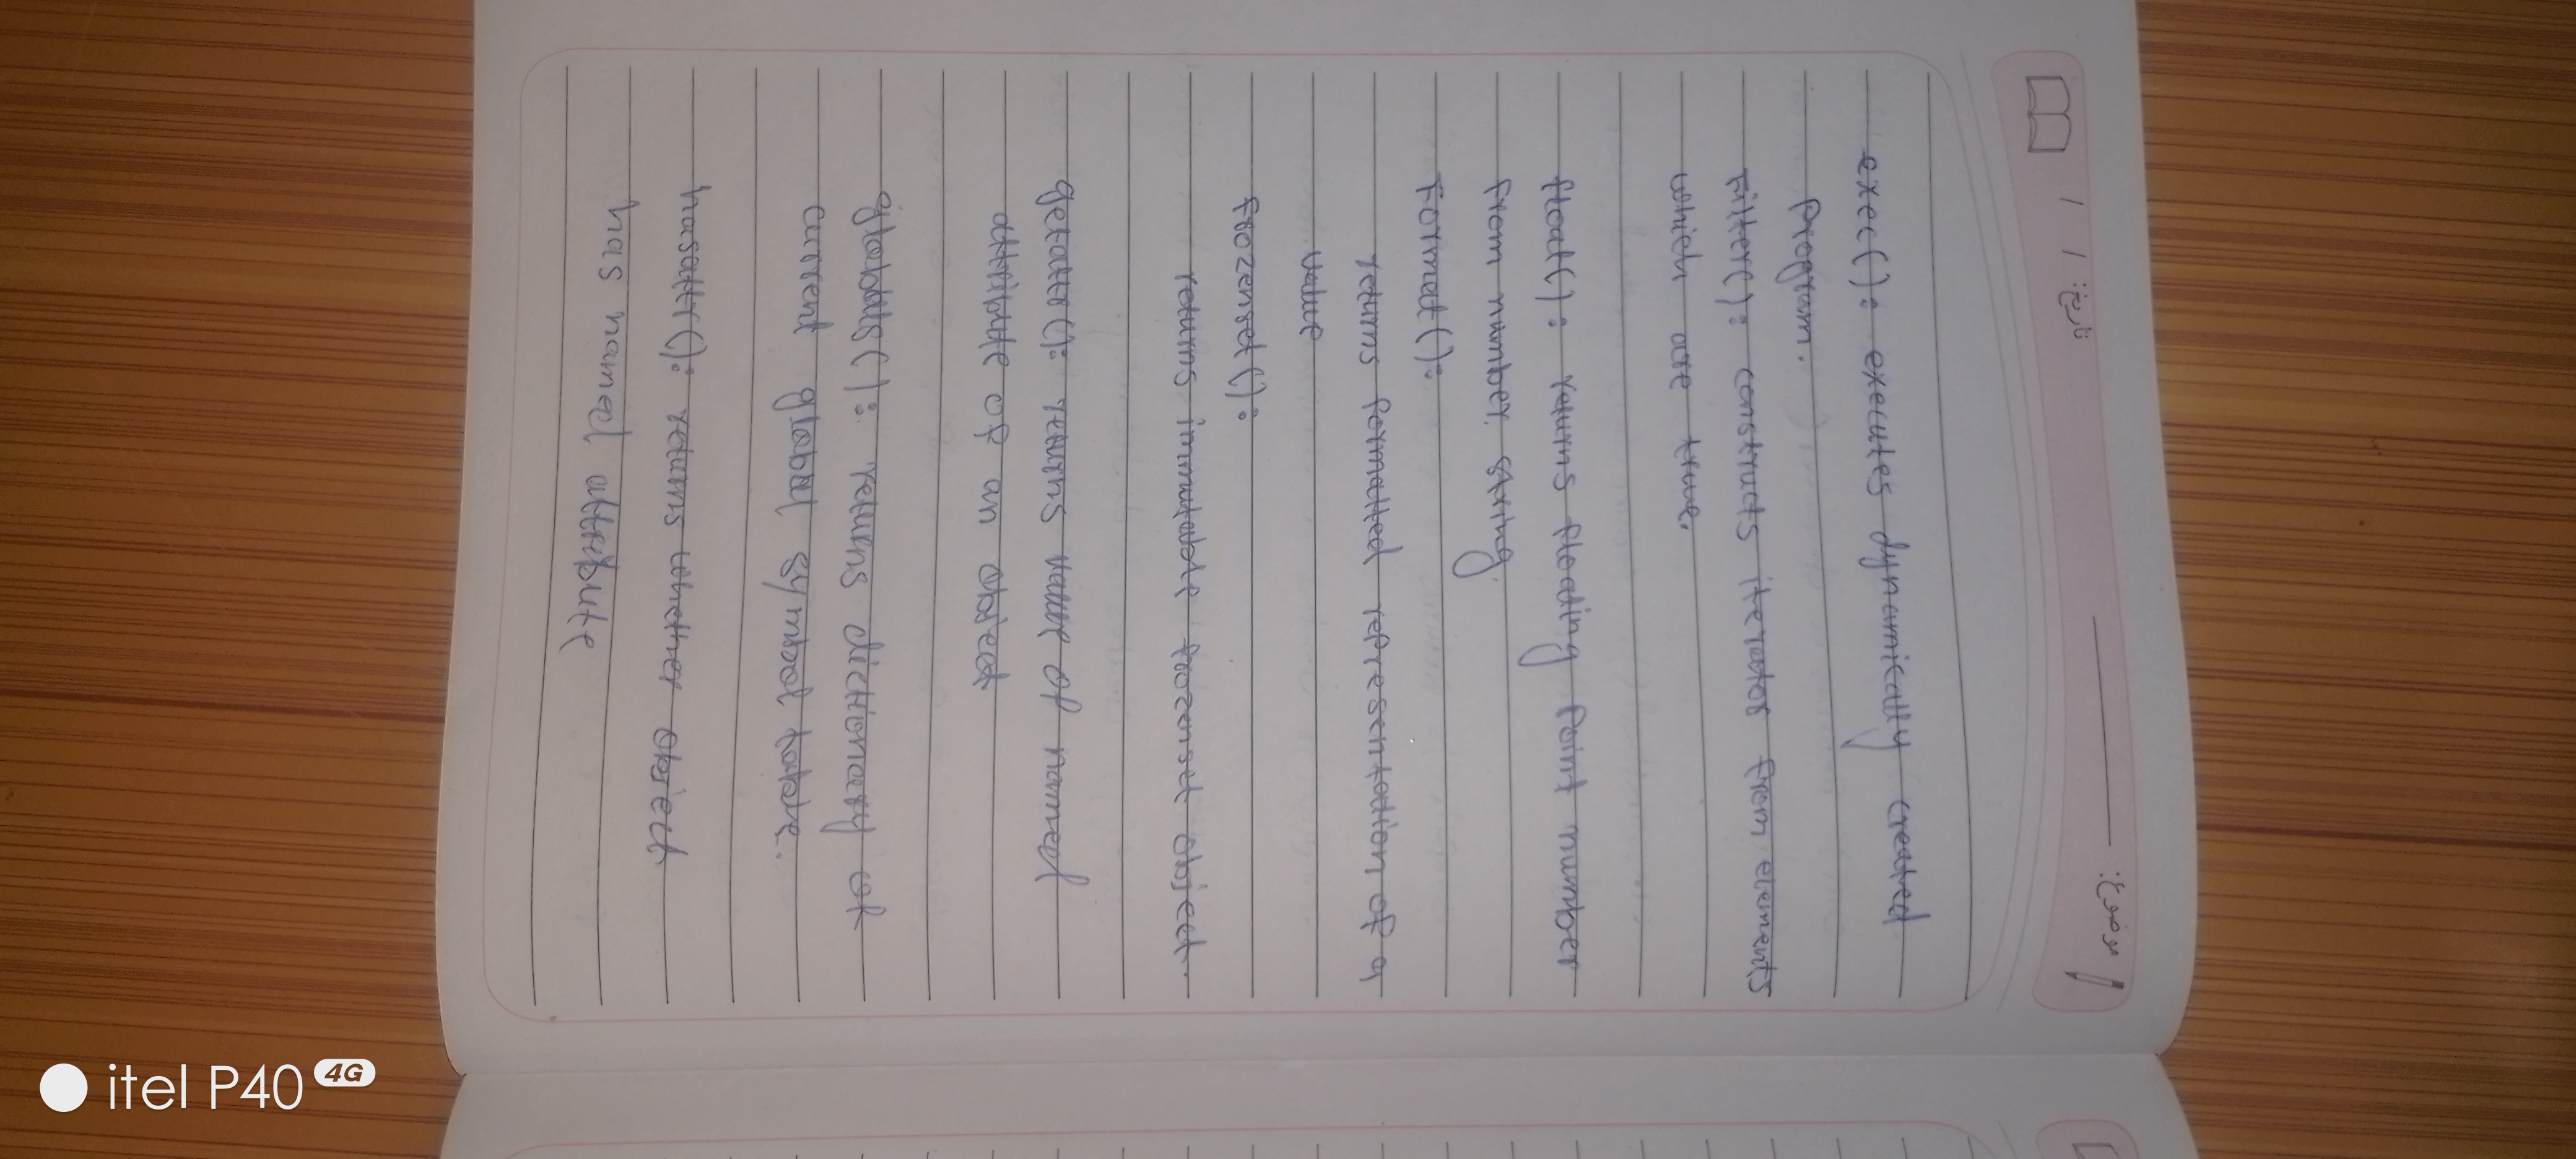 تاريخ: / /
موضوع:
exec(): executes dynamically created
Program.
Filter(): constructs iterator from elements
which are true.
float(): returns floating point number
from number, string.
Format():
returns formatted representation of a
value
frozenset():
returns immutable frozenset object.
getattr(): returns value of named
attribute of an object
globals(): returns dictionary of
current global symbol table.
hasattr(): returns whether object
has named attribute
itel P40 4G